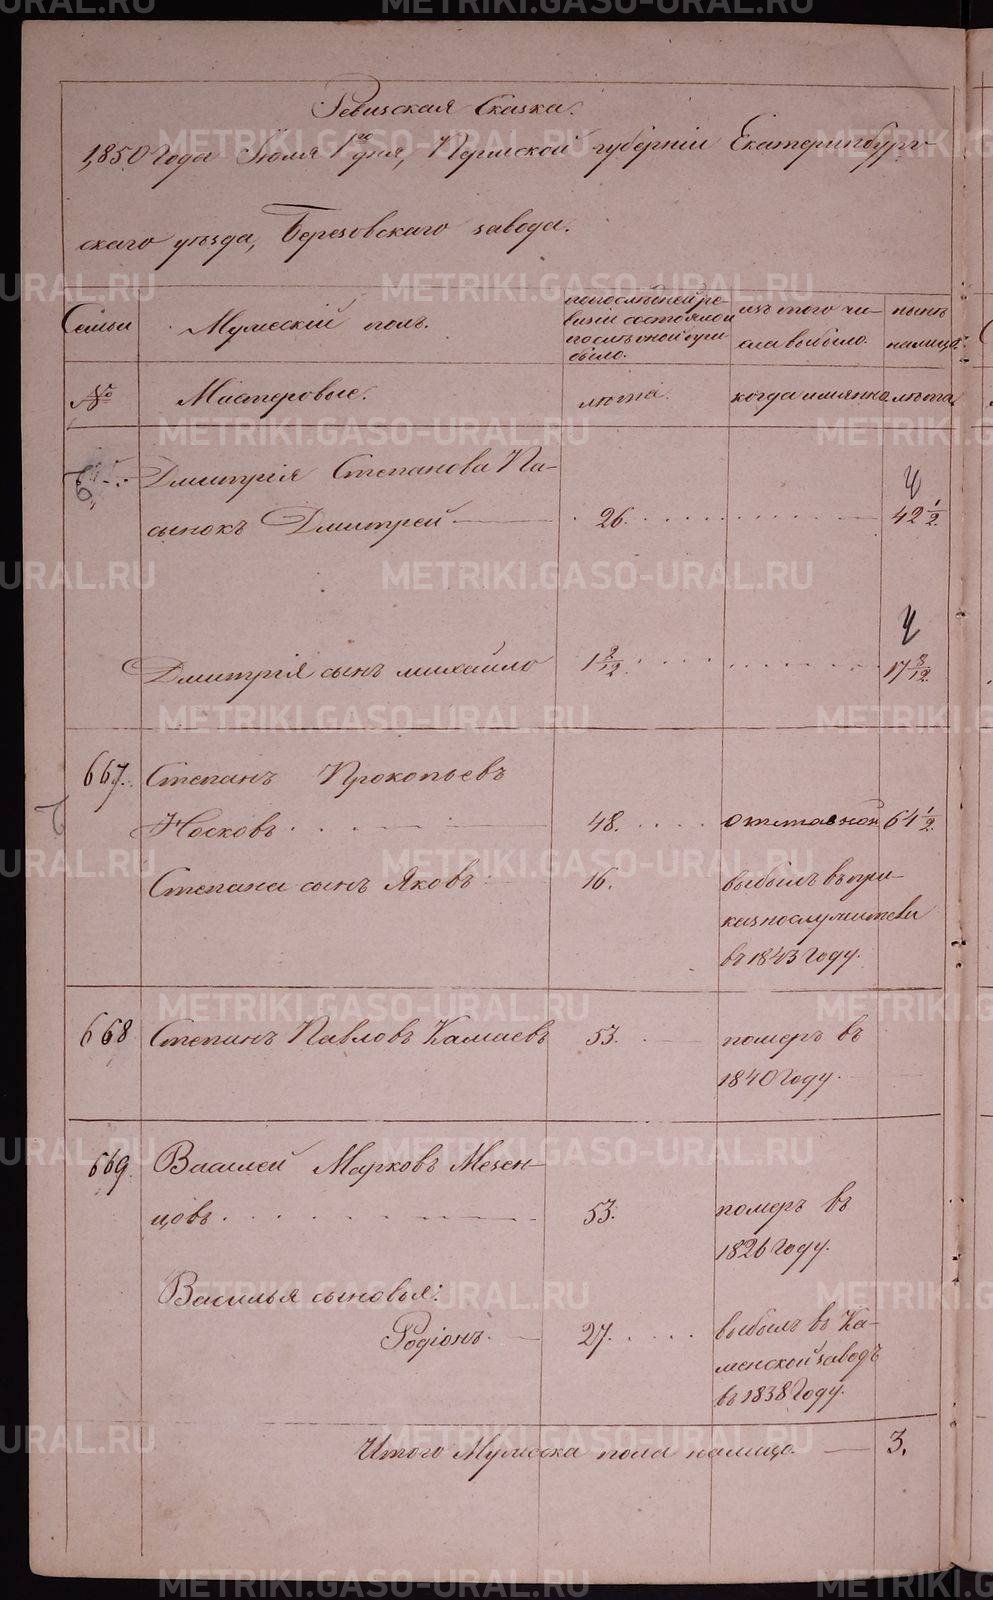 Ревизская Сказка.
1850 Года Июля 1го дня, Пермской губернiи Екатеринбург-
скаго уѣзда, Березовскаго завода.
Семьи
Мужескiй полъ.
по последней ре-
визiи состояло и
после оной при
было.
изъ того чи-
сла выбыло.
нынѣ
налицо.
№
Мастеровые.
лѣта.
когда имянно
лѣта
Дмитрiя Степанова Па-
сынокъ Дмитрей 26. 42 1/2
Дмитрiя сынъ михайло 1 2/12 17 8/12
667. Степанъ Прокопьевъ
Носковъ 48. отставной 64 1/2
Степана сынъ Яковъ 16. выбылъ въ при-
казнослужители
въ 1843 Году.
668 Степанъ Павловъ Камаевъ 53. померъ въ
1840 Году.
669 Василей Марковъ Мезен-
цовъ 53. померъ въ
1826 Году.
Василья сыновья:
Родiонъ 27. выбылъ въ Ка-
менской заводъ
въ 1838 Году.
Итого Мужеска пола налицо 3.
METRIKI.GASO-URAL.RU